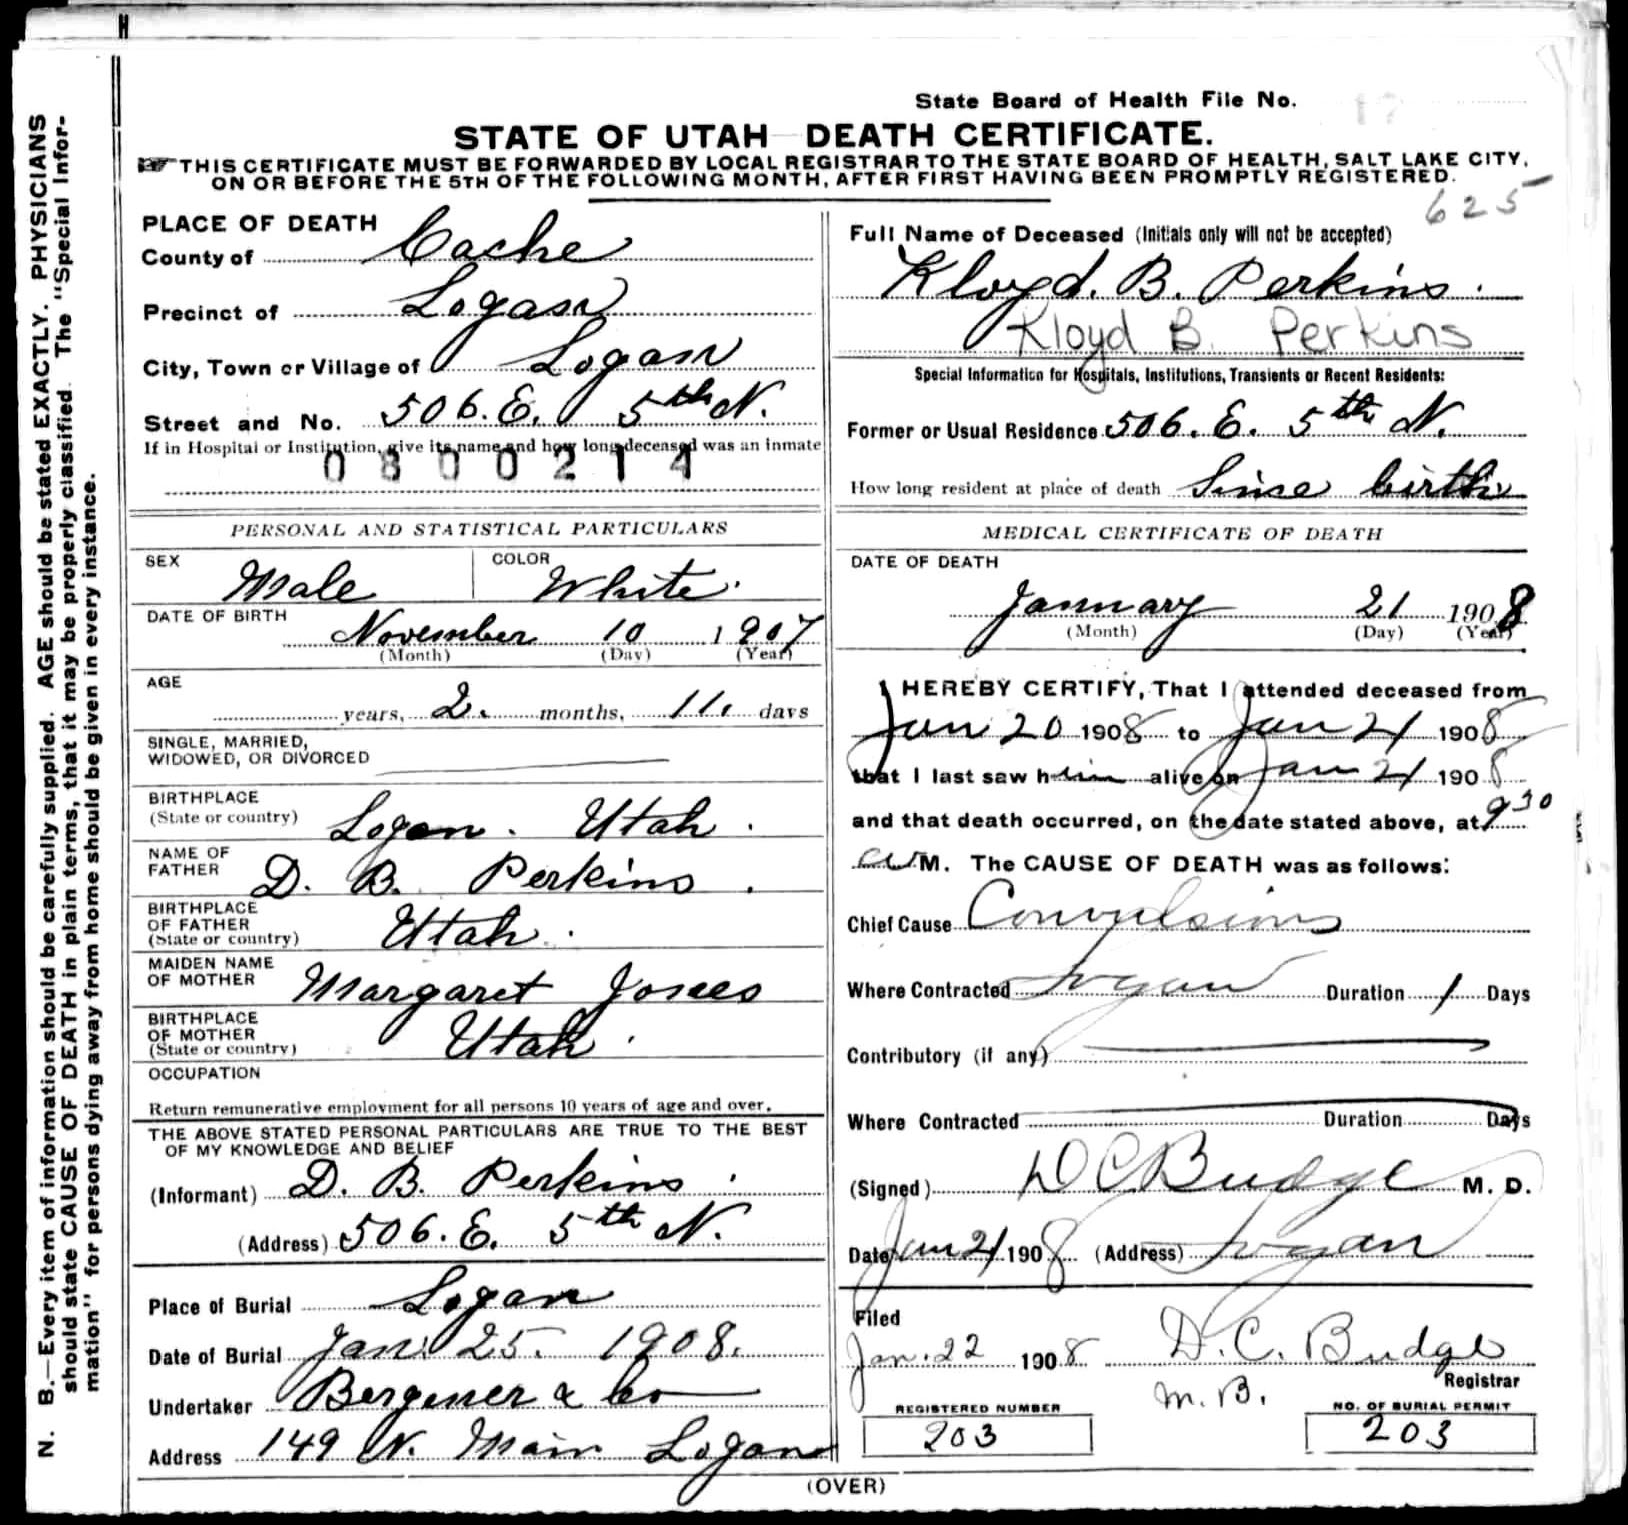 State Board of Health File No. 17
STATE OF UTAH DEATH CERTIFICATE.
THIS CERTIFICATE MUST BE FORWARDED BY LOCAL REGISTRAR TO THE STATE BOARD OF HEALTH, SALT LAKE CITY,
ON OR BEFORE THE 5TH OF THE FOLLOWING MONTH, AFTER FIRST HAVING BEEN PROMPTLY REGISTERED.
625
N. B.—Every item of information should be carefully supplied. AGE should be stated EXACTLY. PHYSICIANS
should state CAUSE OF DEATH in plain terms, that it may be properly classified. The "Special Infor-
mation" for persons dying away from home should be given in every instance.
PLACE OF DEATH
County of Cache
Precinct of Logan
City, Town or Village of Logan
Street and No. 506. E. 5th N.
If in Hospital or Institution, give its name and how long deceased was an inmate
0800214
PERSONAL AND STATISTICAL PARTICULARS
SEX Male COLOR White.
DATE OF BIRTH
November 10 1907
(Month) (Day) (Year)
AGE
years, 2. months, 11. days
SINGLE, MARRIED,
WIDOWED, OR DIVORCED
BIRTHPLACE
(State or country) Logan. Utah.
NAME OF
FATHER D. B. Perkins.
BIRTHPLACE
OF FATHER
(State or country) Utah.
MAIDEN NAME
OF MOTHER Margaret Jones
BIRTHPLACE
OF MOTHER
(State or country) Utah.
OCCUPATION
Return remunerative employment for all persons 10 years of age and over.
THE ABOVE STATED PERSONAL PARTICULARS ARE TRUE TO THE BEST
OF MY KNOWLEDGE AND BELIEF
(Informant) D. B. Perkins.
(Address) 506. E. 5th N.
Place of Burial Logan
Date of Burial Jan. 25. 1908.
Undertaker Bergener & Co
Address 149 N. Main Logan
Full Name of Deceased (Initials only will not be accepted)
Kloyd. B. Perkins.
Kloyd B. Perkins
Special Information for Hospitals, Institutions, Transients or Recent Residents:
Former or Usual Residence 506. E. 5th N.
How long resident at place of death Since birth
MEDICAL CERTIFICATE OF DEATH
DATE OF DEATH
January 21 1908
(Month) (Day) (Year)
I HEREBY CERTIFY, That I attended deceased from
Jan 20 1908 to Jan 21 1908
that I last saw him alive on Jan 21 1908
and that death occurred, on the date stated above, at 9 30
a M. The CAUSE OF DEATH was as follows:
Chief Cause Convulsions
Where Contracted Logan Duration 1 Days
Contributory (if any)
Where Contracted Duration Days
(Signed) D C Budge M. D.
Date Jan 21 1908 (Address) Logan
Filed
Jan. 22 1908 D. C. Budge
Registrar
M. B.
REGISTERED NUMBER
203
NO. OF BURIAL PERMIT
203
(OVER)